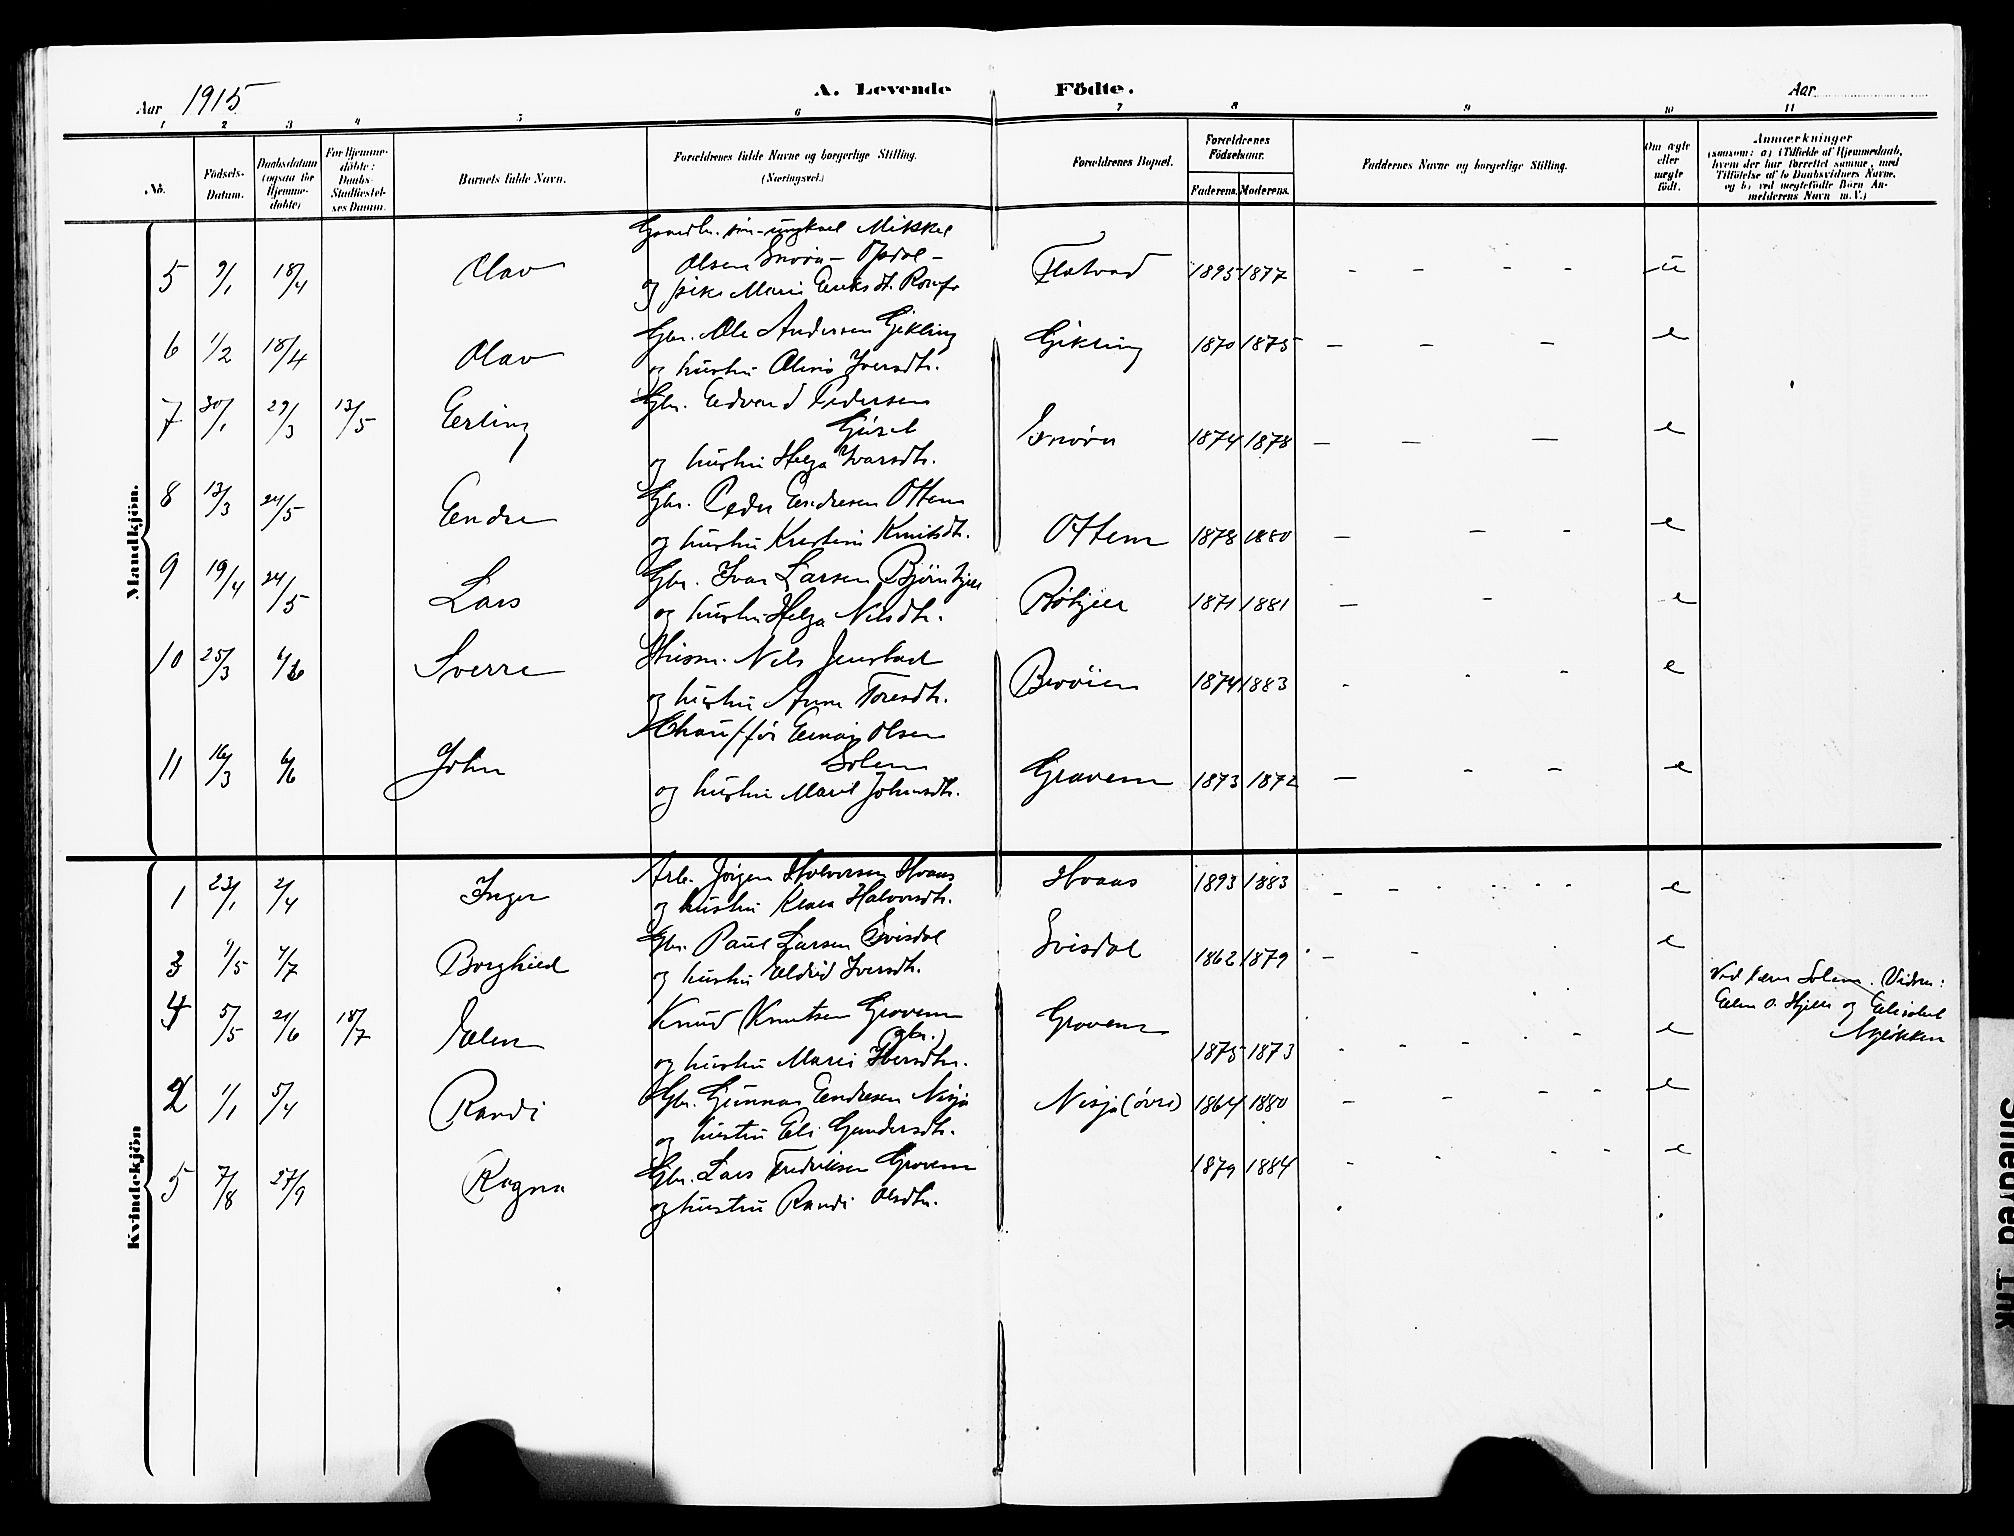 Aar 1915
A. Levende Födte.
Aar
1 2 3 4 5 6 7 8 9 10 11
No.
Födsels-Datum.
Daabsdatum (ogsaa för Hjemmedöbte)
For Hjemmedöbte: Daabs-Stadfæstelses Datum.
Barnets fulde Navn.
Forældrenes fulde Navne og borgerlige Stilling. (Næringsvei.)
Forældrenes Bopæl.
Forældrenes Födselsaar.
Faderens. Moderens.
Faddernes Navne og borgerlige Stilling.
Om ægte eller uægte födt.
Anmærkninger
(saasom: a) i Tilfælde af Hjemmedaab, hvem der har forrettet samme, med Tilföielse af to Daabsvidners Navne, og b) ved uægtefödte Börn Anmelderens Navn m. V.)
Mandkjön.
5 9/1 18/4 Olav
Gaardbr. sön - ungkarl Mikkel
Olsen Snøva - Opdal -
og pike Marie Eriksdt.
Flatvad 1895 1877 - - - - u
6 1/2 18/4 Olav
Gbr. Ole Andersen Gikling
og hustru Iversdtr.
Gikling 1870 1875 - - - e
7 30/1 29/3 13/5 Erling
Gbr. Edvard Pedersen
og hustru Helga Ivarsdtr.
Snøva 1874 1878 - - - e
8 13/3 24/5 Endre
Gbr. Peder Endresen Ottem
og hustru Kristine Knutsdtr.
Ottem 1878 1880 - - - e
9 19/4 24/5 Lars
Gbr. Ivar Larsen
og hustru Helga Nilsdtr.
1871 1881 - - e
10 25/3 6/6 Sverre
Husm. Nils Jenstad
og hustru Anne Toresdtr.
1874 1883 - - - e
11 16/3 6/6 John
Chauffør Einar Olsen
Solem
og hustru Marit Johnsdtr.
Gravem 1873 1872 - - - e
Kvindekjön
1 23/1 2/4 Inger
Arb. Jörgen Halvorsen Hvaas
og hustru Klara Halvorsdtr.
Hvaas 1893 1883 - - - - - - e
3 1/5 4/7 Borghild
Gbr. Paul Larsen Svisdal
og hustru Eldrid Iversdtr.
Svisdal 1862 1879 - - e
4 5/5 21/6 18/7 Elen
Knud Knutsen Gravem
(gbr.)
og hustru Marie Iversdtr.
Gravem 1875 1873 - - - - e
Ved lærer Solem. Vidner:
Elen O. Hjelle og Elisabet
Nyløkken
2 1/1 5/4 Randi
Gbr. Gunnar Endresen Nisja
og hustru Eli Gundersdtr.
Nisja (övre) 1864 1880 - - - - e
5 7/8 27/9 Ragna
Gbr. Lars Fredriksen Gravem
og hustru Randi Olsdtr.
1879 1884 - - - - e
Smeared Ink